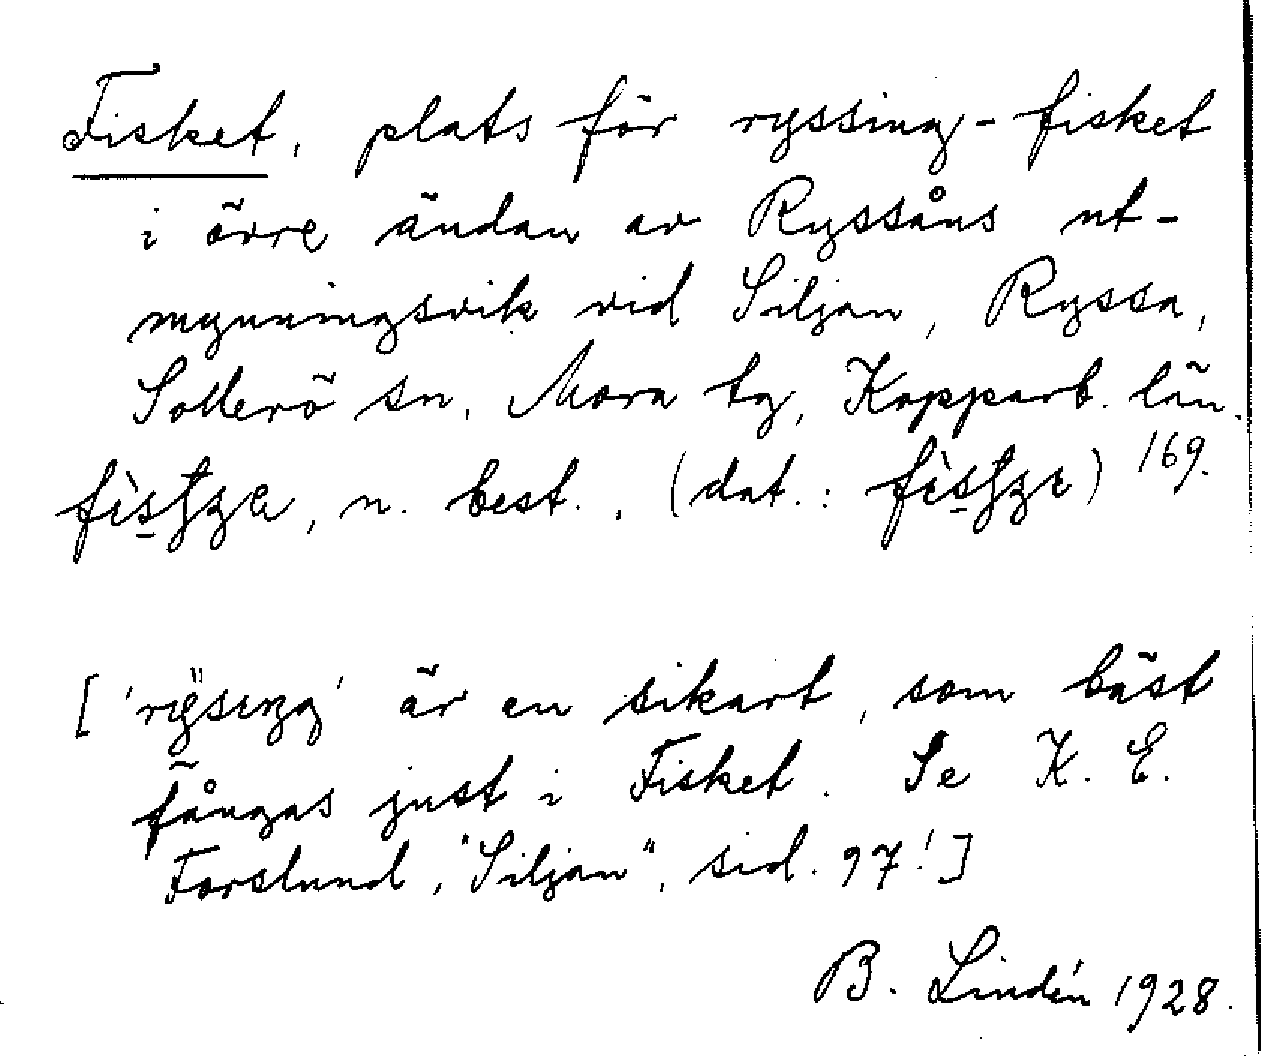 Fisket, plats för ryssing-fisket
i övre ändan av Ryssåns ut-
mynningsvik vid Siljan, Ryssa,
Sollerö sn, Mora tg, Kopparb. län.
n. best., (dat.: 169.
['rysıŋg' är en sikart, som bäst
fångas just i Fisket. Se K. E.
Forslund, "Siljan", sid. 97!]
B. Lindén 1928.